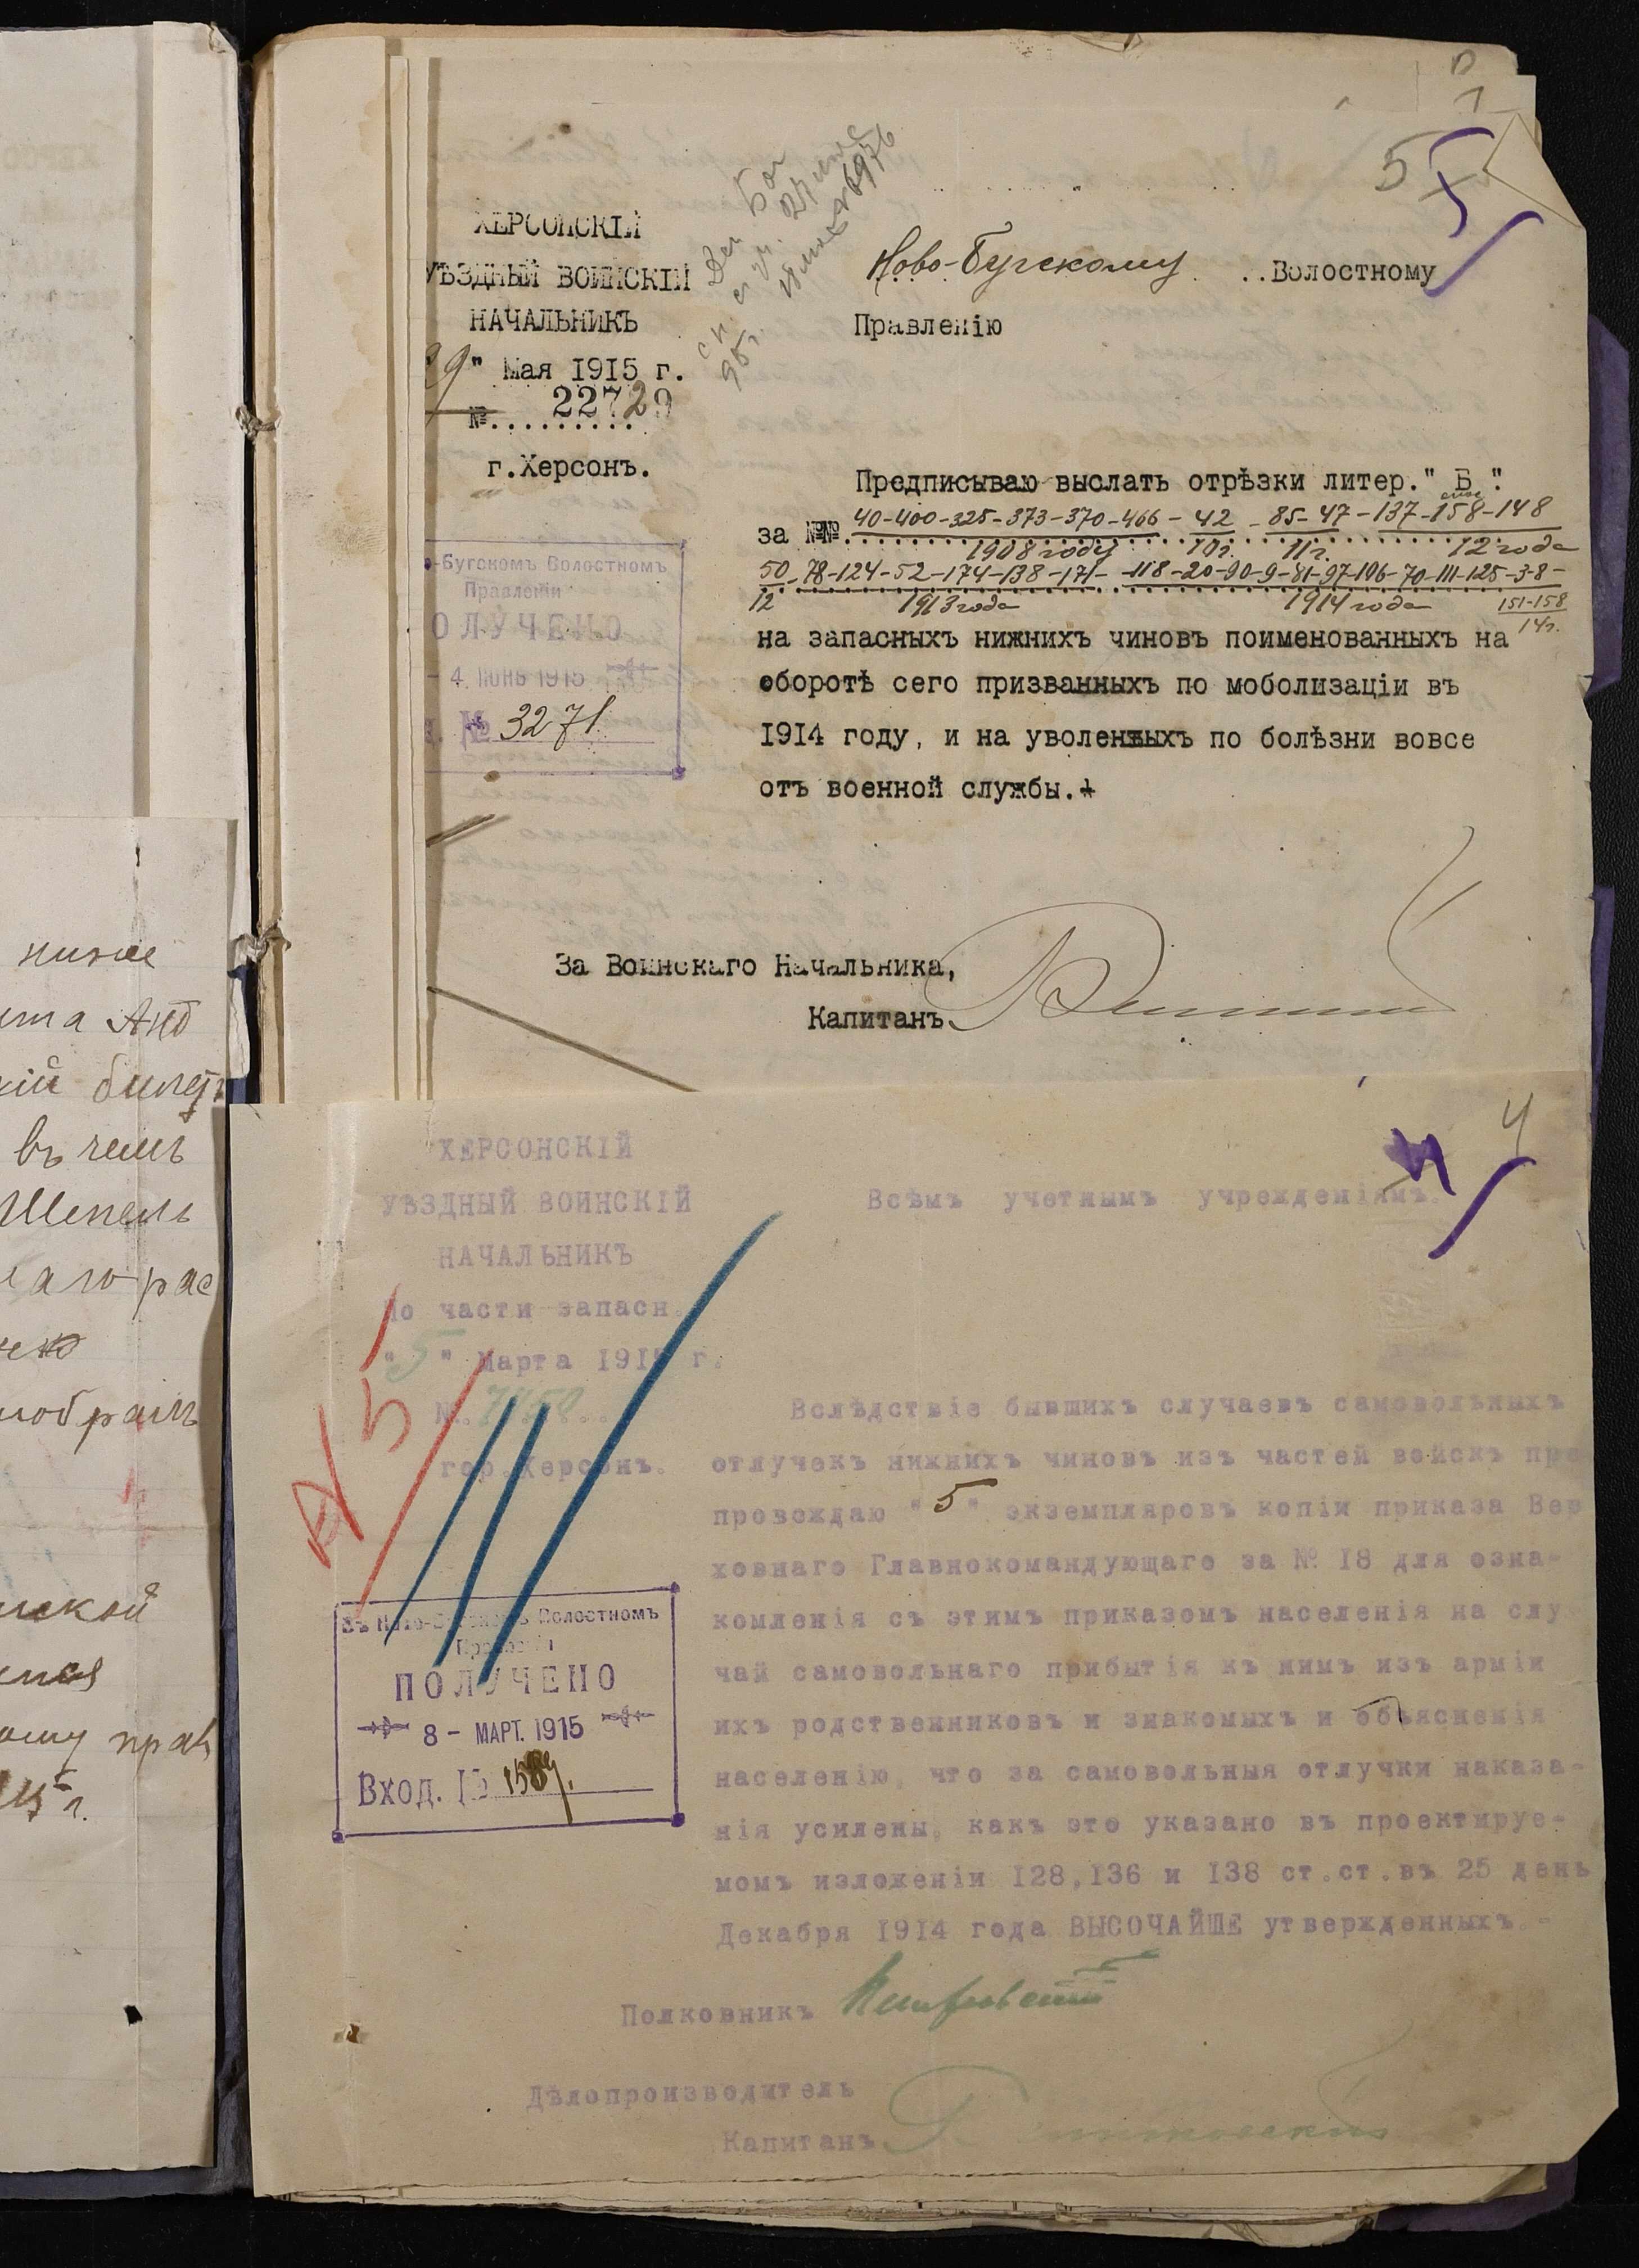 5
ХЕРСОНСКІЙ
УѢЗДНЫЙ ВОИНСКІЙ
НАЧАЛЬНИКЪ
9" Мая 1915 г.
№ 22729
г.Херсонъ.
Ново-Бугскому Волостному
Правленію
Предписываю выслать отрѣзки литер." Б ".
за №№. 40-400-325-373-370-466-42-85-47-137-158-148
1908 году 10г. 11г. 12 года
50-78-124-52-174-138-171- -118-20-90-9-81-97-106-70-111-125-3-8-
12 1913 года 1914 года 151-158
14г.
на запасныхъ нижнихъ чиновъ поименованныхъ на
оборотѣ сего призванныхъ по моболизаціи въ
1914 году, и на уволенныхъ по болѣзни вовсе
отъ военной службы.
-Бугскомъ Волостномъ
Правленіи
ОЛУЧЕНО
- 4 ІЮНЬ 1915
№ 3271
За Воинскаго Начальника,
Капитанъ
4
ХЕРСОНСКІЙ
УѢЗДНЫЙ ВОИНСКІЙ
НАЧАЛЬНИКЪ
По части запасн.
"5" Марта 1915 г.
№.
гор.Херсонъ.
Всѣмъ учетнымъ учрежденіямъ.
Вслѣдствіе бывшихъ случаевъ самовольныхъ
отлучекъ нижнихъ чиновъ изъ частей войскъ пре
провождаю "5" экземпляровъ копіи приказа Вер
ховнаго Главнокомандующаго за № 18 для озна-
комленія съ этимъ приказомъ населенія на слу
чай самовольнаго прибытія къ нимъ изъ арміи
ихъ родственниковъ и знакомыхъ и объясненія
населенію, что за самовольныя отлучки наказа-
нія усилены, какъ это указано въ проектируе-
момъ изложеніи 128,136 и 138 ст.ст.въ 25 день
Декабря 1914 года ВЫСОЧАЙШЕ утвержденныхъ.-
Въ Ново-Бугскомъ Волостномъ
Правленіи
ПОЛУЧЕНО
8 - МАРТ. 1915
Вход. № 1589.
Полковникъ
Дѣлопроизводитель
Капитанъ
ниже
билетъ
въ чемъ
Шепель